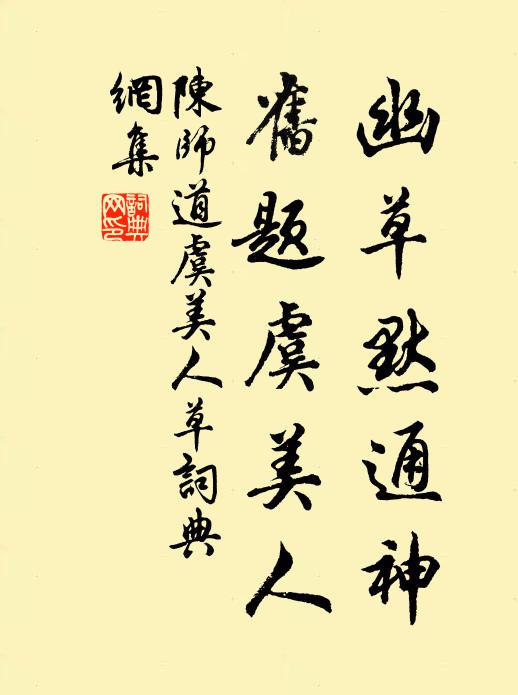 幽草默通神
舊題虞美人
陳師道虞美人草詞典
網集
詞典网印